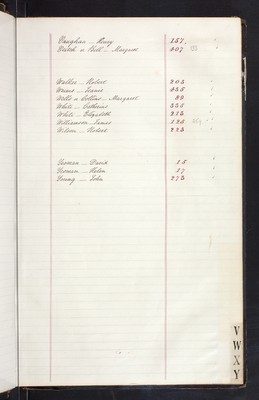 Vaughan — Henry 157
Veitch or Bell — Margaret 407
Walker — Robert 303
Weims — Isaac 455
Wells or Collins — Margaret 89
White — Catherine 335
White — Elizabeth 213
Williamson — James 125
Wilson — Robert 223
Yeoman — David 15
Yeoman — Helen 17
Young — John 273
V
W
X
Y